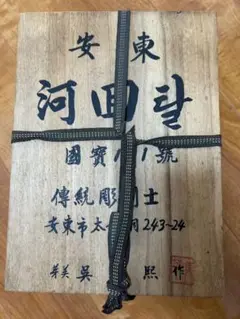 安東
河回탈
國寶 號
傳統彫 士
安東市太 洞 243~24
吳 熙 作